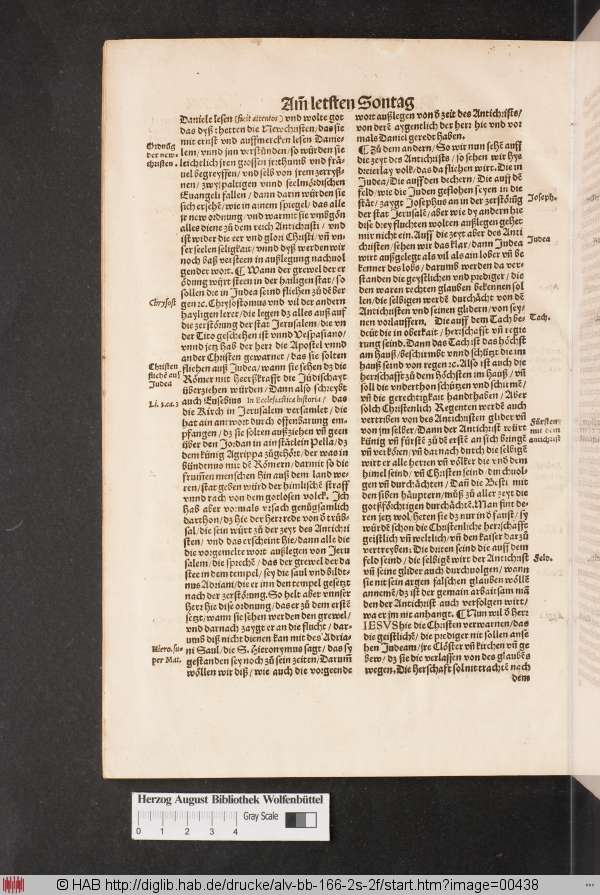 Am̃ letsten Sontag
Daniele lesen (sicit attentos) vnd wolte got
das dyß thetten die Newchristen / das sie
mit ernst vnd auffmercken lesen Danie-
lem / vnnd jun verstünden / so würden sie
leichtlich jren grossen jrthumb vnd frä-
uel begreyffen / vnd selb von jrem zerryß-
nen / zwyspaltigen vnnd seelmördischen
Euangeli fallen / dann darin würden sie
sich ersehē / wie in ainem spiegel / das alle
jr new ordnung / vnd warmit sie vmbgōn
alles diene zů dem reich Antichristi / vnd
ist wider die eer vnd glori Christi / vñ vn-
ser seelen seligkait / vnnd dyß werden wir
noch baß versteen in außlegung nachuol
gender wort. ¶ Wann der grewel der er
ödnung würt steen in der hailigen stat / so
sollen die in Judea seind fliehen zů dē ber
gen ꝛc. Chrysostomus vnd vil der andern
hayligen lerer / die legen dz alles auß auff
die zerstörung der stat Jerusalem / die vn
der Tito geschehen ist vnnd Vespasiano /
vnnd jetz hab der herr die Apostel vnnd
andre Christen gewarnet / das sie solten
fliehen auß Judea / wann sie sehen dz die
Römer mit heerßkrafft die Jüdischayt
überziehen würden / Dann also schreybt
auch Eusebius in Ecclesiastica historia / das
die Kirch in Jerusalem versamlet / die
hat ain antwort durch offenbarung em-
pfangen / dz sie solten außziehen vñ geen
über den Jordan in ain stätlein Pella / dz
dem künig Agrippa zůgehört / der was in
bündenus mit dē Römern / darmit so die
frum̃en menschen hin auß dem land we-
ren / stat geben würd der himlischē straff
vnnd rach von dem gotlosen volck. Ich
hab aber vormals vrsach genůgsamlich
darthon / dz hie der herr rede von ŏ trüb-
sal / die sein würt zů der zeyt des Antichri
sten / vnd das erscheint hie / dann alle die
die vorgemelte wort außlegen von Jeru
salem / die sprechē / das der grewel der da
stee in dem tempel / sey die saul vnd bildt-
nus Adriani / die er inn den tempel gesetzt
nach der zerstörung. So helt aber vnnser
Herr hie dise ordnung / das er zů dem erstē
setzt / wann sie sehen werden den grewel /
vnd darnach zaygt er an die flucht / dar-
umb diß nicht dienen kan mit des Adria-
ni Saul / die S. Hieronymus sagt / das sy
gestanden sey noch zů sein zeiten / Darum̃
wöllen wir diß / wie auch die vorgeende
Ordnūg
der new-
christen.
Chrysost
Christen
fliehē auß
Judea
Li. 3. ca. 3
Hiero. su-
per Mat.
wort außlegen von ŏ zeit des Antichrists /
von derē aygentlich der herr hie vnd vor
mals Daniel geredt haben.
¶ Zů dem andern / So wir nun sehē auff
die zeyt des Antichrists / so sehen wir hye
dreierlay volk / das da fliehen wirt. Die in
Judea / Die auff den dechern / Die auff dē
feld / wie die Juden geflohen seyen in die
stät / zaygt Josephus an in der zerstörūg
der stat Jerusalē / aber wie dy andern hie
dise drey fluchten wolten außlegen gehet
mir nicht ein. Auff die zeyt aber des Anti
christen / sehen wir das klar / dann Judea
wirt außgelegt als vil als ain lober vñ be
kenner des lobs / darumb werden da ver-
standen die geystlichen vnd prediger / die
den waren rechten glauben bekennen sol
len / die selbigen werdē durchächt von dē
Antichristen vnd seinen glidern / von sey-
nen vorlauffern. Die auff dem Tach be-
deüt die in oberkait / herrschafft vñ regie
rung seind. Dann das Tach ist das höchst
am hauß / beschirmbt vnnd schützt die im
hauß seind von regen ꝛc. Also ist auch die
herrschafft zů dem höchsten im hauß / vñ
soll die vnderthon schützen vnd schirmē /
vñ die gerechtigkait handthaben / Aber
solch Christenlich Regenten werdē auch
vertriben von des Antichristen glider vñ
von jm selber / Dann der Antichrist würt
künig vñ fürstē zů dē erstē an sich bringē
vñ verkören / vñ darnach durch die selbigē
wirt er alle herren vñ völcker die vnd̕ dem
himel seind / vñ Christen seind / dmchuol-
gen vñ durchächten / Dañ die Besti mit
den siben häuptern / můß zů aller zeyt die
gotßförchtigen durchächtē. Man fint de-
ren jetz wol / heten sie dz nur in ŏ faust / sy
würdē schon die Christenliche herrschafft
geistlich vñ weltlich / vñ den kaiser darzů
vertreyben. Die driten seind die auff dem
feld seind / die selbigt wirt der Antichrist
vñ seine glider auch durchuolgen / wann
sie nit sein argen falschen glauben wöllē
annemē / dz ist der gemain arbaitsam mā
den der Antichrist auch verfolgen wirt /
wa er jm nit anhangt. ¶ Nun wil ŏ herr
IESVS hie die Christen verwarnen / das
die geistlichē / die prediger nit sollen anse
hen Judeam / jre Clöster vñ kirchen vñ ge
bew / dz sie die verlassen von des glaubēs
wegen. Die herschaft sol nit trachtē nach
dem
Joseph.
Judea
Tach.
Fürsten
mit dem
antichrist
Feld.
Herzog August Bibliothek Wolfenbüttel
0 1 2 3 4 Gray Scale
© HAB http://diglib.hab.de/drucke/alv-bb-166-2s-2f/start.htm?image=00438